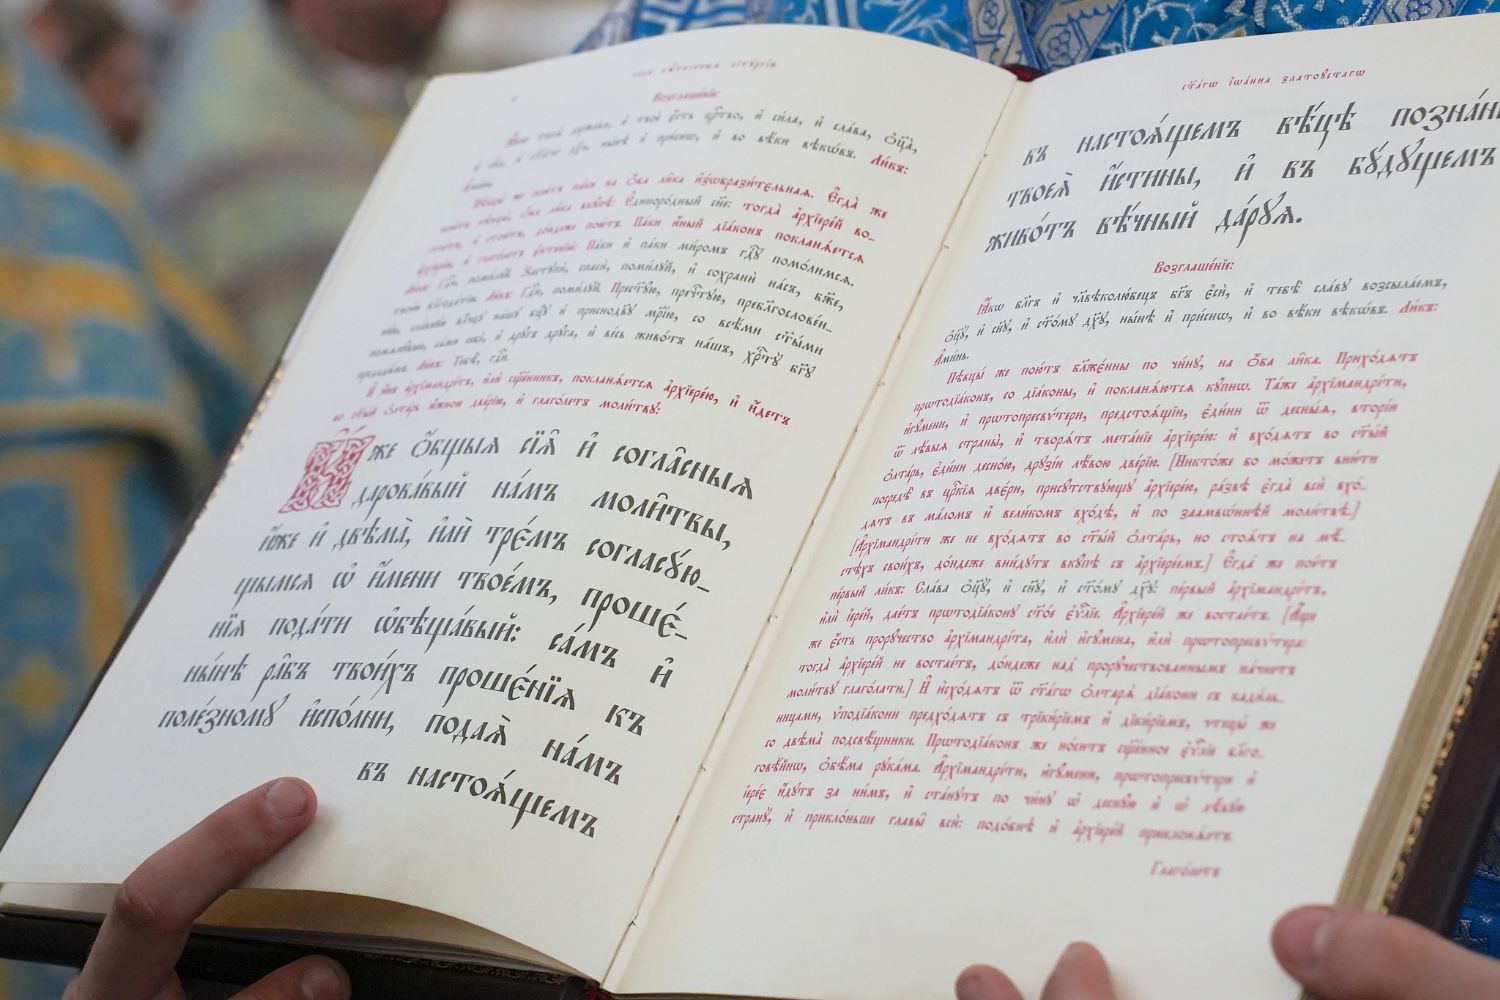 Возглаше́нїе:
ꙗ҆́кѡ твоѧ̀ держа́ва, и҆ твоѐ є҆́сть ца́рство, и҆ си́ла, и҆ сла́ва, ѻ҆ц҃а̀,
и҆ сн҃а, и҆ ст҃а́гѡ дх҃а, ны́нѣ и҆ при́снѡ, и҆ во вѣ́ки вѣкѡ́въ. Ли́къ:
А҆ми́нь.
Пѣвцы́ же пою́тъ па́ки на ѻ҆́ба ли́ка и҆з̾ѡбрази́тєльнаѧ. Е҆гда́ же
Е҆диноро́дный сн҃е: тогда̀ а҆рхїере́й во-
Па́ки и҆́ный дїа́конъ покланѧ́етсѧ
а҆рхїере́ю, и҆ глаго́летъ є҆ктенїю̀: Па́ки и҆ па́ки ми́ромъ гд҇ꙋ помо́лимсѧ.
Ли́къ: Гд҇и, поми́лꙋй. Застꙋпѝ, спасѝ, поми́лꙋй, и҆ сохранѝ на́съ, бж҃е,
твое́ю благода́тїю. Ли́къ: Гд҇и, поми́лꙋй. Прест҃ꙋ́ю, пречⷭ҇тꙋю, пребл҃гослове́н-
нꙋю, сла́внꙋю влⷣчцꙋ на́шꙋ бцⷣꙋ и҆ приснодв҃ꙋ мр҃і́ю, со всѣ́ми ст҃ы́ми
помѧнꙋ́вше, са́ми себѐ, и҆ дрꙋ́гъ дрꙋ́га, и҆ ве́сь живо́тъ на́шъ, хрⷭ҇тꙋ̀ бг҃ꙋ
предади́мъ. Ли́къ: Тебѣ̀, гд҇и.
а҆рхїмандрі́тъ, и҆лѝ сщ҃е́нникъ, покланѧ́етсѧ а҆рхїере́ю, и҆ и҆́детъ
во ст҃ы́й ѻ҆лта́рь ю҆́жною две́рїю, и҆ глаго́летъ моли́твꙋ:
И҆́же ѻ҆́бщыѧ сїѧ̑ и҆ согла̑сныѧ
дарова́вый на́мъ моли̑твы,
и҆́же и҆ двѣма̀, и҆лѝ трє́мъ согласꙋ́ю-
щымсѧ ѡ҆ и҆́мени твое́мъ, прошє́-
нїѧ пода́ти ѡ҆бѣща́вый: са́мъ и҆
ны́нѣ ра̑бъ твои́хъ прошє́нїѧ къ
поле́зномꙋ и҆спо́лни, пода́ѧ на́мъ
въ настоѧ́щемъ
ст҃а́гѡ і҆ѡа́нна златоꙋ́стагѡ
въ настоѧ́щемъ вѣ́цѣ позна́н
твоеѧ̀ и҆́стины, и҆ въ бꙋ́дꙋщемъ
живо́тъ вѣ́чный да́рꙋѧ.
Возглаше́нїе:
Ꙗ҆́кѡ бл҃гъ и҆ чл҃вѣколю́бецъ бг҃ъ є҆сѝ, и҆ тебѣ̀ сла́вꙋ возсыла́емъ,
ѻ҆ц҃ꙋ̀, и҆ сн҃ꙋ, и҆ ст҃о́мꙋ дх҃ꙋ, ны́нѣ и҆ при́снѡ, и҆ во вѣ́ки вѣкѡ́въ. Ли́къ:
А҆ми́нь.
Пѣвцы́ же пою́тъ бл҃жє́нны по чи́нꙋ, на ѻ҆́ба ли́ка. Прихо́дѧтъ
прѡтодїа́конъ, со дїа́коны, и҆ покланѧ́ютсѧ кꙋ́пнѡ. Та́же а҆рхїмандрі́ти,
и҆гꙋ́мени, и҆ прѡтопресвѵ́тери, предстоѧ́щїи, є҆ди́ни ѿ десны́ѧ, вторі́и
ѿ лѣ́выѧ страны̀, и҆ творѧ́тъ мета́нїе а҆рхїере́ю: и҆ вхо́дѧтъ во ст҃ы́й
ѻ҆лта́рь, є҆ди́ни десно́ю, дрꙋзі́и лѣ́вою две́рїю. [Никто́же бо мо́жетъ вни́ти
посредѣ̀ въ цр҃кїѧ две́ри, присꙋ́тствꙋющꙋ а҆рхїере́ю, ра́звѣ є҆гда̀ всѝ вхо́-
дѧтъ въ ма́ломъ и҆ вели́комъ вхо́дѣ, и҆ по заамвѡ́ннѣй моли́твѣ.]
[А҆рхїмандрі́ти же не вхо́дѧтъ во ст҃ы́й ѻ҆лта́рь, но стоѧ́тъ на мѣ-
стѣ́хъ свои́хъ, до́ндеже вни́дꙋтъ вкꙋ́пѣ съ а҆рхїере́емъ.] Е҆гда́ же пою́тъ
пе́рвый ли́къ: Сла́ва ѻ҆ц҃ꙋ̀, и҆ сн҃ꙋ, и҆ ст҃о́мꙋ дх҃ꙋ: пе́рвый а҆рхїмандрі́тъ,
и҆лѝ і҆ере́й, дае́тъ прѡтодїа́конꙋ ст҃о́е є҆ѵⷢ҇лїе. А҆рхїере́й же востае́тъ. [А҆́ще
же є҆́сть прорꙋ́чество а҆рхїмандрі́та, и҆лѝ и҆гꙋ́мена, и҆лѝ прѡтопресвѵ́тера:
тогда̀ а҆рхїере́й не востае́тъ, до́ндеже над̾ прорꙋ́чествованнымъ на́чнетъ
моли́твꙋ глаго́лати.] И҆ и҆схо́дѧтъ ѿ ст҃а́гѡ ѻ҆лтарѧ̀ дїа́кони съ кади́ль-
ницами, ѵ҆подїа́кони предхо́дѧтъ съ трїки́рїемъ и҆ дїки́рїемъ, чтецы́ же
со двѣма̀ подсвѣ́щники. Прѡтодїа́конъ же но́ситъ сщ҃е́нное є҆ѵⷢ҇лїе бл҃го-
говѣ́йнѡ, ѻ҆бѣ́ма рꙋка́ма. А҆рхїмандрі́ти, и҆гꙋ́мени, прѡтопресвѵ́тери и҆
і҆ере́є и҆́дꙋтъ за ни́мъ, и҆ ста́нꙋтъ по чи́нꙋ ѡ҆ деснꙋ́ю и҆ ѡ҆ лѣ́вꙋю
странꙋ̀, и҆ прикло́ньше главы̑ всѝ: подо́бнѣ и҆ а҆рхїере́й приклонѧ́етъ.
Глаго́летъ